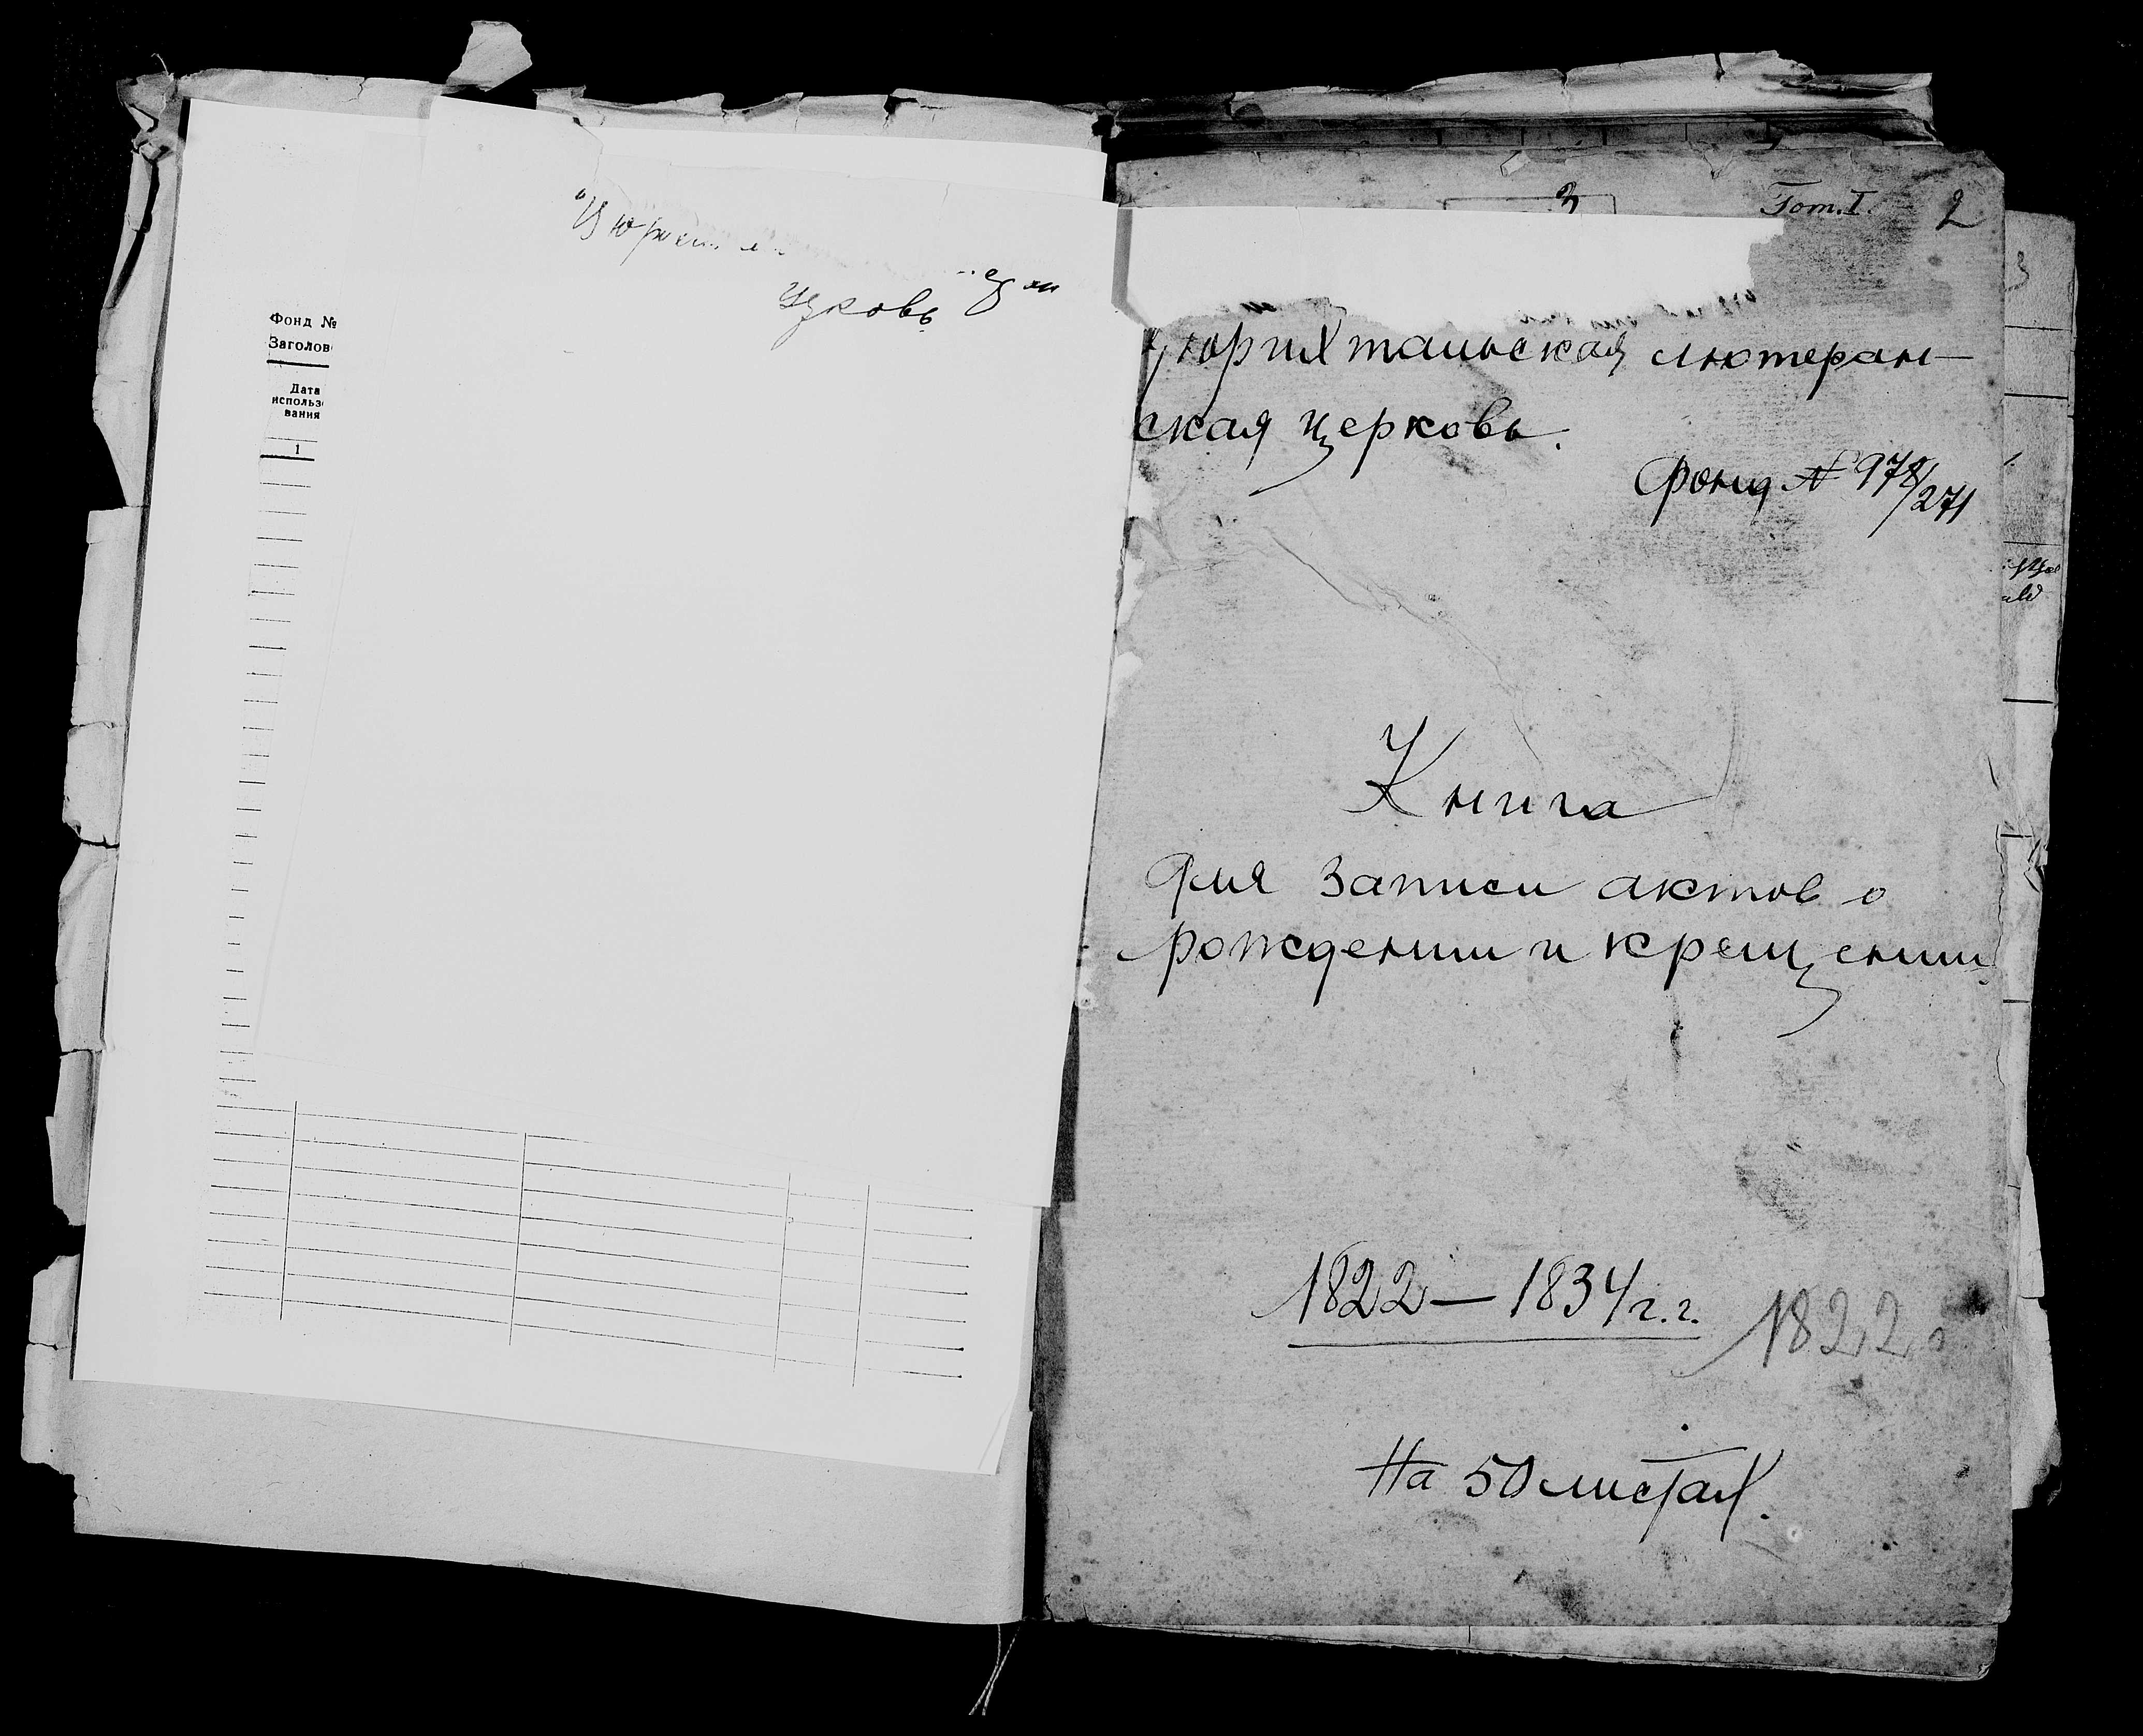 Фонд №
Заголов
Дата
использо
вания
1
церковь
3
Том. I.
2
Цюрихтальская лютеран-
ская церковь.
Фонд № 978/271
Книга
для записи актов о
рождении и крещении
1822 — 1834 г.г.
1822.
На 50 листах.